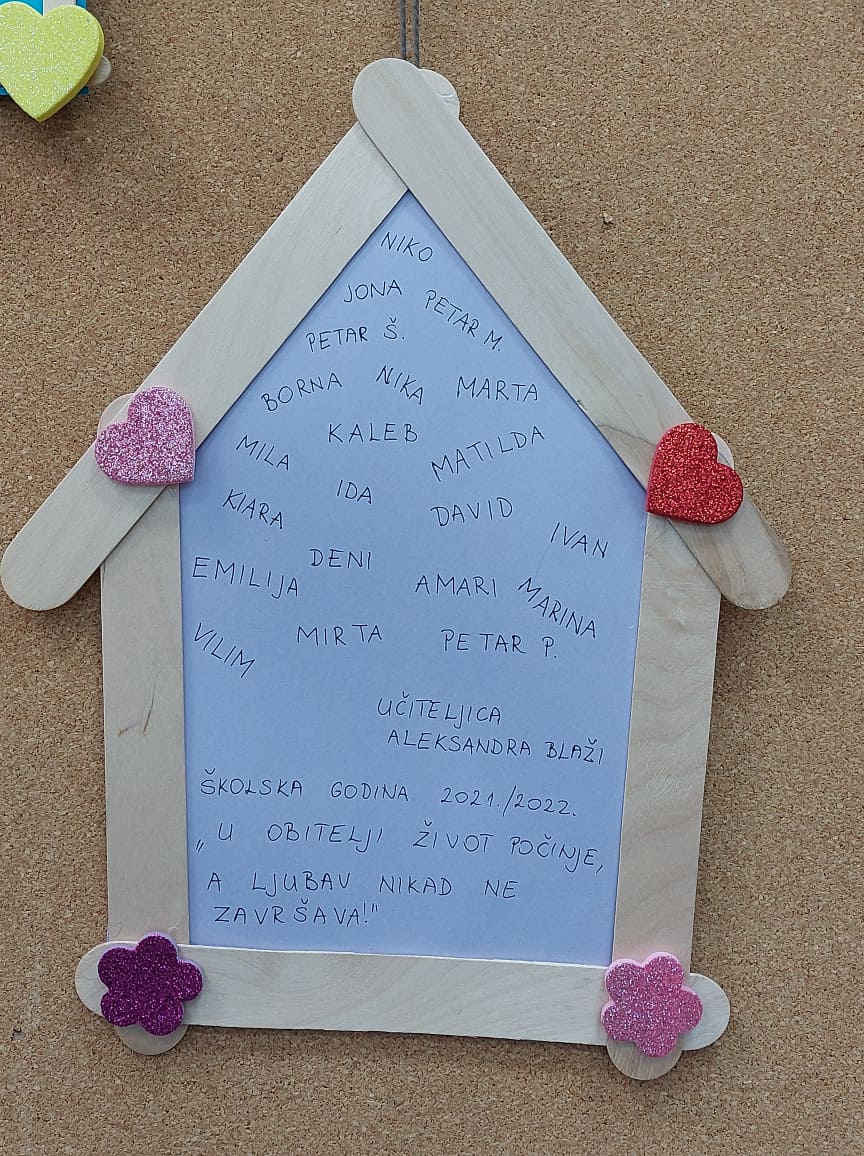 NIKO
JONA PETAR M.
PETAR Š.
BORNA NIKA MARTA
KALEB
MILA MATILDA
IDA
KIARA DAVID
IVAN
DENI
EMILIJA AMARI MARINA
VILIM MIRTA PETAR P.
UČITELJICA
ALEKSANDRA BLAŽI
ŠKOLSKA GODINA 2021./2022.
„U OBITELJI ŽIVOT POČINJE,
A LJUBAV NIKAD NE
ZAVRŠAVA!"